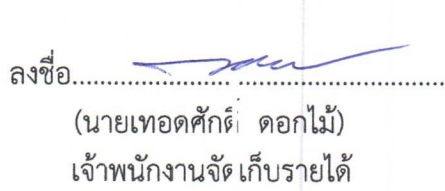 ลงชื่อ...............................................................
(นายเทอดศักดิ์ ดอกไม้)
เจ้าพนักงานจัดเก็บรายได้